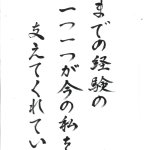 までの経験の
一つ一つが今の私を
支えてくれてい